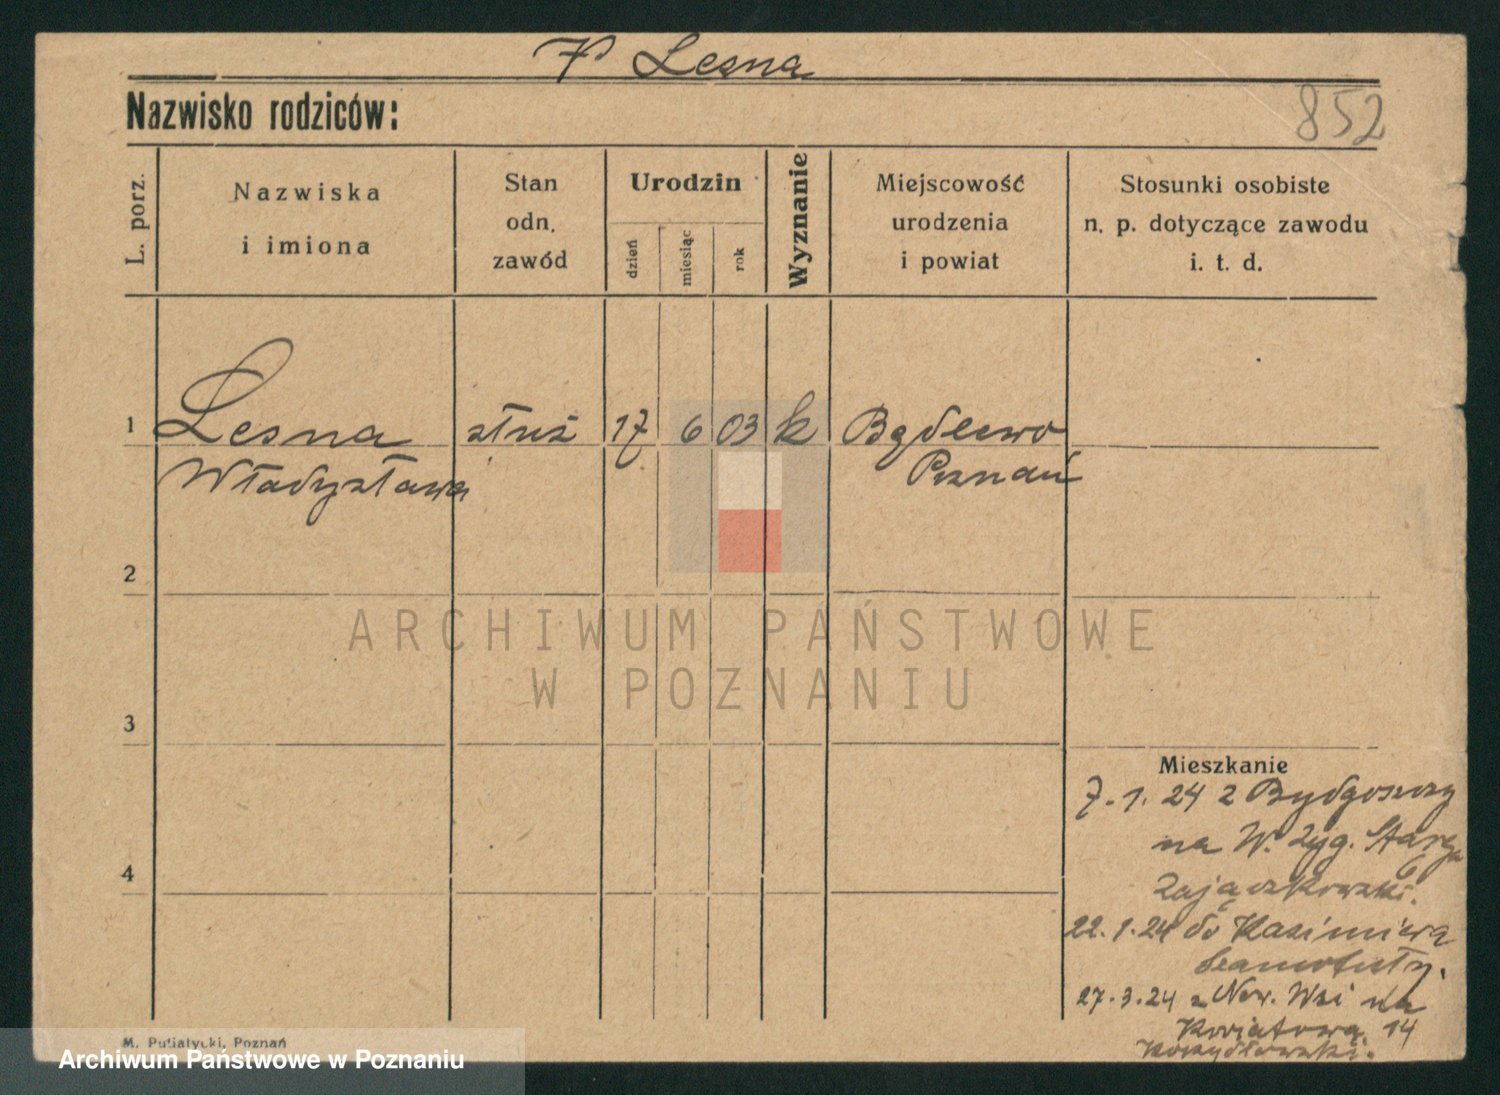 Lesna
Nazwisko rodziców:
852
L. porz.
Nazwiska
i imiona
Stan
odn.
zawód
Urodzin
dzień
miesiąc
rok
Wyznanie
Miejscowość
urodzenia
i powiat
Stosunki osobiste
n. p. dotyczące zawodu
i. t. d.
1 Lesna służ 17 6 03 k Bądlewo
Władysława Poznań
2
ARCHIWUM PAŃSTWOWE
W POZNANIU
3
Mieszkanie
7.1.24 z Bydgoszczy
4
na W. Zyg. Starego
6
Zajączkowski.
22.1.24 do Kazimierza
Szamotuły.
27.3.24 z Now. Wsi na
Kwiatową 14
M. Putiatycki, Poznań
Archiwum Państwowe w Poznaniu